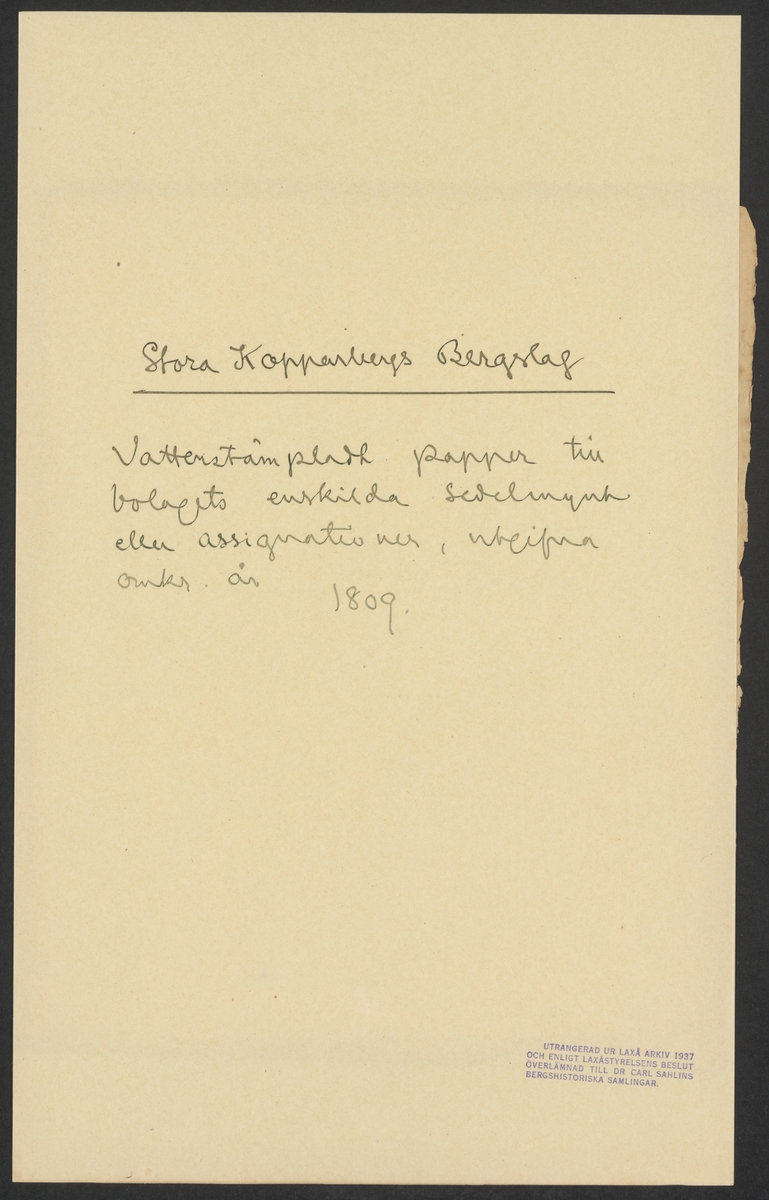 Stora Kopparbergs Bergslag
Vattenstämpladt papper till
bolagets enskilda sedelmynt
eller assignationer, utgifna
omkr. år 1809.
UTRANGERAD UR LAXÅ ARKIV 1937
OCH ENLIGT LAXÅSTYRELSENS BESLUT
ÖVERLÄMNAD TILL DR CARL SAHLINS
BERGSHISTORISKA SAMLINGAR.